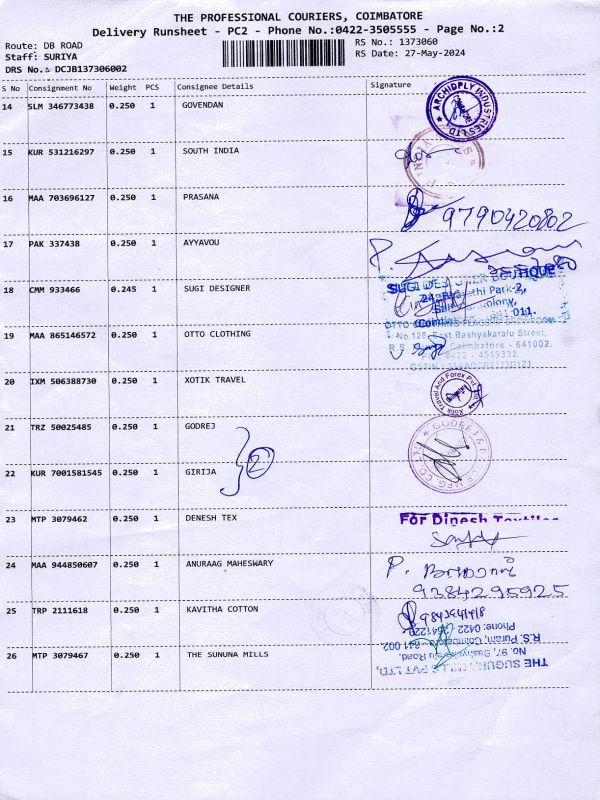 THE PROFESSIONAL COURIERS, COIMBATORE
Delivery Runsheet - PC2 - Phone No.:0422-3505555 - Page No.:2
Route: DB ROAD RS No.: 1373060
Staff: SURIYA RS Date: 27-May-2024
DRS No.: DCJB137306002
S No Consignment No Weight PCS Consignee Details Signature
14 SLM 346773438 0.250 1 GOVENDAN
ARCHIDPLY INDUSTRIES LTD
15 KUR 531216297 0.250 1 SOUTH INDIA
16 MAA 703696127 0.250 1 PRASANA
9790420802
17 PAK 337438 0.250 1 AYYAVOU
18 CMM 933466 0.245 1 SUGI DESIGNER
SUGI DESIGNER BOUTIQUE
Park-2,
011.
19 MAA 865146572 0.250 1 OTTO CLOTHING
No.128, East Bashyakaralu Street,
R.S. Coimbatore - 641002.
0422 - 4519333
20 IXM 506388730 0.250 1 XOTIK TRAVEL
Xotik Travel And Forex Pvt
21 TRZ 50025485 0.250 1 GODREJ
GODREJ & MFG. CO. LTD
2
22 KUR 7001581545 0.250 1 GIRIJA
23 MTP 3079462 0.250 1 DENESH TEX
For Dinesh Textiles
24 MAA 944850607 0.250 1 ANURAAG MAHESWARY
9384295925
25 TRP 2111618 0.250 1 KAVITHA COTTON
26 MTP 3079467 0.250 1 THE SUNUNA MILLS
THE SUGUNA MILLS PVT LTD,
No 97, Bashyakaralu Road,
R.S. Puram, Coimbatore - 641 002
Phone: 0422 2541226